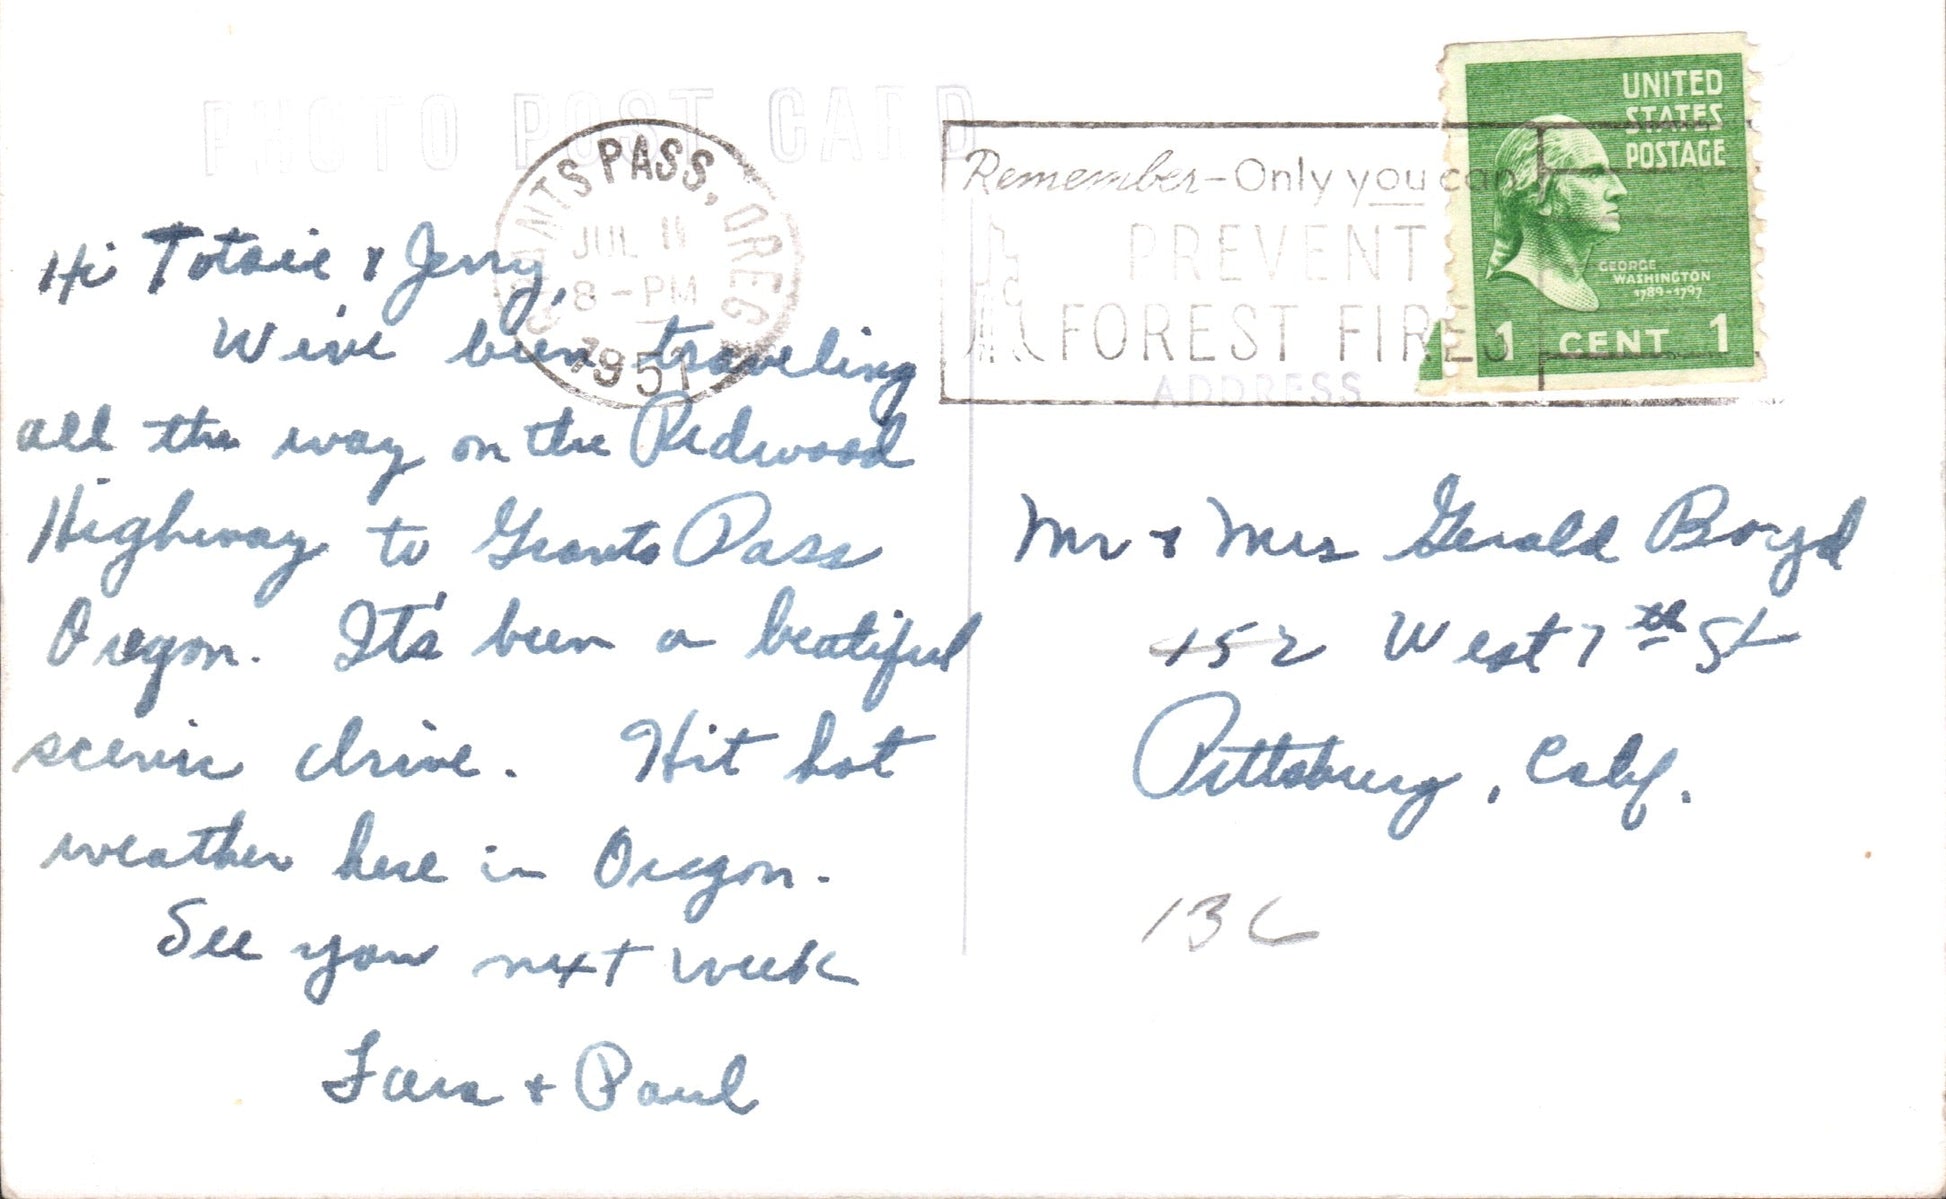 PHOTO POST CARD
GRANTS PASS, OREG.
JUL 11
8 - PM
1951
Remember - Only you can
PREVENT
FOREST FIRES
UNITED
STATES
POSTAGE
GEORGE
WASHINGTON
1789-1797
1 CENT 1
ADDRESS
Hi Totsie & Jerry,
We've been traveling
all the way on the Redwood
Highway to Grants Pass
Oregon. It's been a beatiful
scenic drive. Hit hot
weather here in Oregon.
See you next week
& Paul
Mr & Mrs Gerald Boyd
152 West 7th St
Pittsburg, Calif.